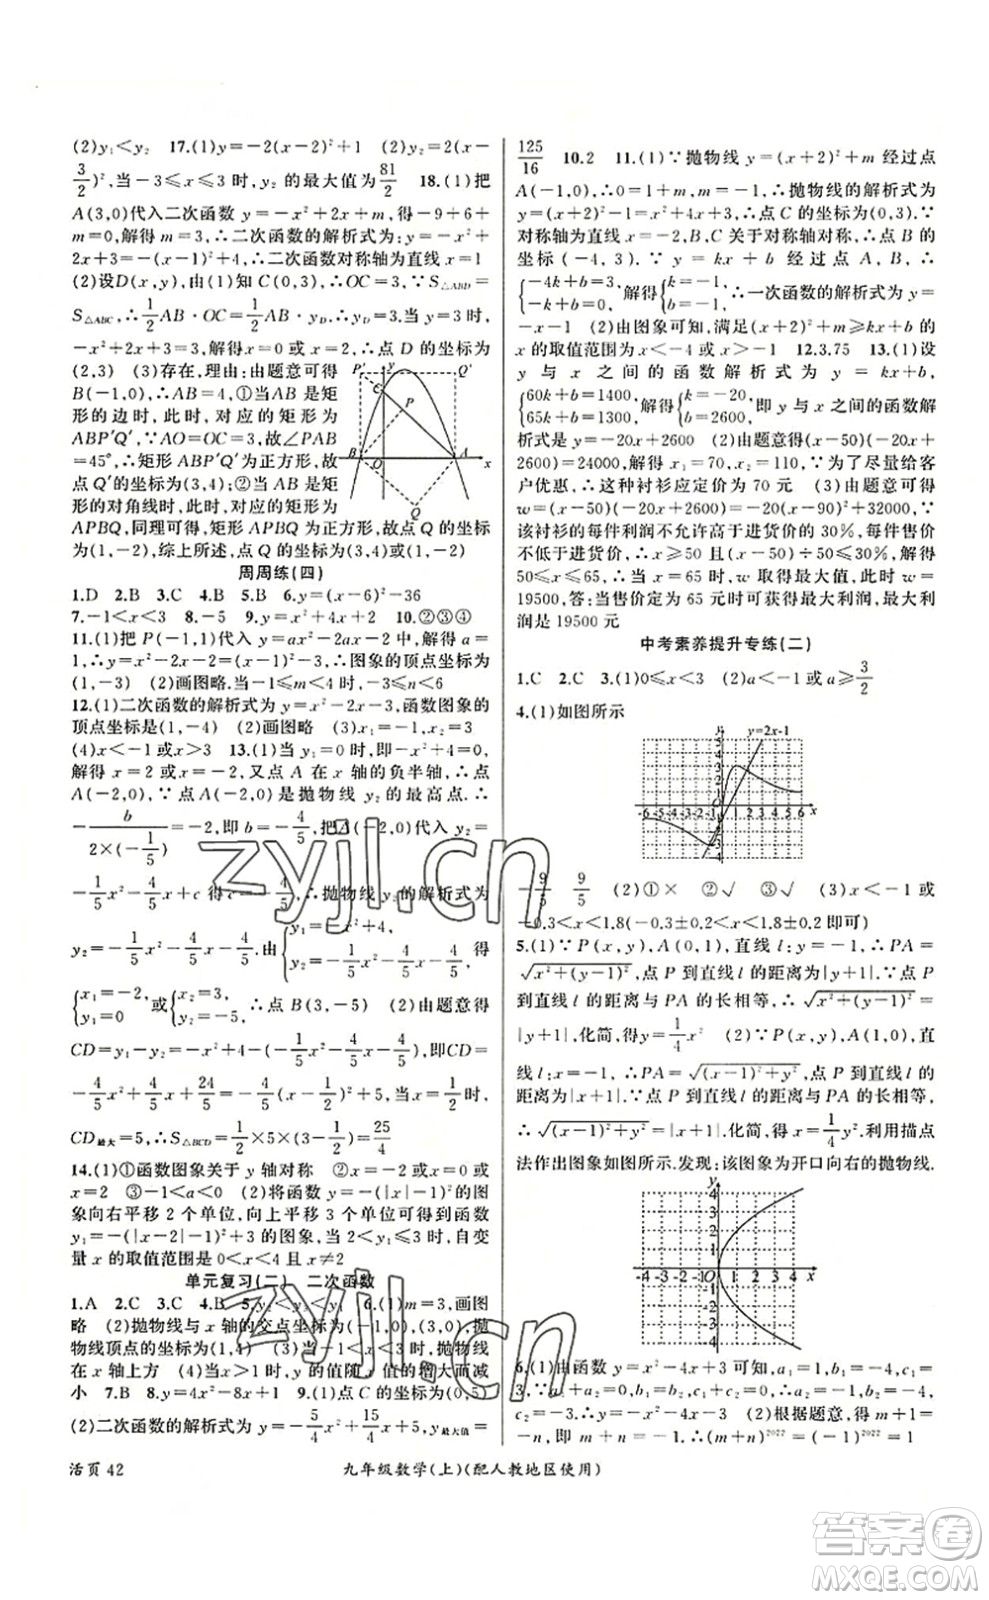 (2)y₁<y₂ 17.(1)y=-2(x-2)²+1 (2)y₂=2(x-
3/2)²,当-3≤x≤3时,y₂的最大值为81/2 18.(1)把
A(3,0)代入二次函数 y=-x²+2x+m,得-9+6+
m=0,解得m=3,∴二次函数的解析式为y=-x²+
2x+3=-(x-1)²+4,∴二次函数对称轴为直线x=1
(2)设D(x,y),由(1)知C(0,3),∴OC=3,∵S△ABD=
S△ABC,∴1/2AB·OC=1/2AB·y_D.∴y_D=3.当y=3时,
-x²+2x+3=3,解得x=0或x=2,∴点D的坐标为
(2,3) (3)存在,理由:由题意可得
B(-1,0),∴AB=4,①当AB是矩
形的边时,此时,对应的矩形为
ABP′Q′,∵AO=OC=3,故∠PAB
=45°,∴矩形ABP′Q′为正方形,故点
Q′的坐标为(3,4);②当AB是矩形
的对角线时,此时,对应的矩形为
APBQ,同理可得,矩形APBQ为正方形,故点Q的坐标
为(1,-2),综上所述,点Q的坐标为(3,4)或(1,-2)
P′ y Q′
C
P
B O A x
Q
周周练(四)
1.D 2.B 3.C 4.B 5.B 6.y=(x-6)²-36
7.-1<x<3 8.-5 9.y=x²+4x+2 10.②③④
11.(1)把P(-1,1)代入y=ax²-2ax-2中,解得a=
1,∴y=x²-2x-2=(x-1)²-3,∴图象的顶点坐标
为(1,-3) (2)画图略.当-1≤m≤1时,-2≤n<6
12.(1)二次函数的解析式为y=x²-2x-3,函数图象的
顶点坐标是(1,-4) (2)画图略 (3)-4≤y<0
(4)x<-2或x>3 13.(1)当y₁=0时,-x²+4=0,
解得x=2或x=-2,又点A在x轴的负半轴,∴点
A(-2,0),∵点A(-2,0)是抛物线y₂的最高点.∴
-b/(2×(-1/5))=-2,即b=-4/5,把A(-2,0)代入y₂=
-1/5x²-4/5x+c得c=-4/5,∴抛物线y₂的解析式为
y₂=-1/5x²-4/5x-4/5.由{y₁=-x²+4, y₂=-1/5x²-4/5x-4/5,得
{x₁=-2, y₁=0或{x₂=3, y₂=-5,∴点B(3,-5) (2)由题意得
CD=y₁-y₂=-x²+4-(-1/5x²-4/5x-4/5),即CD=
-4/5x²+4/5x+24/5=-4/5(x-1/2)²+5,当x=1/2时,
CD最大=5,∴S△BCD=1/2×5×(3-1/2)=25/4
14.(1)①函数图象关于y轴对称 ②x=-2或x=0或
x=2 ③-1<a<0 (2)将函数y=-x²+2|x|的图
象向右平移2个单位,向上平移3个单位可得到函数
y₁=-(|x-2|-1)²+4的图象,当2<y₁≤3时,自变
量x的取值范围是0<x<4且x≠2
单元复习(二) 二次函数
1.A 2.C 3.C 4.B 5.y₂<y₃<y₁ 6.(1)m=3,画图
略 (2)抛物线与x轴的交点坐标为(-1,0),(3,0),抛
物线顶点的坐标为(1,4) (3)当-1<x<3时,抛物线
在x轴上方 (4)当x>1时,y的值随x值的增大而减
小 7.B 8.y=4x²-8x+4 9.(1)点C的坐标为(0,5)
(2)二次函数的解析式为y=-5/4x²+15/4x+5,y最大值=
125/16 10.2 11.(1)∵抛物线y=(x+2)²+m经过点
A(-1,0),∴0=1+m,m=-1,∴抛物线的解析式为
y=(x+2)²-1=x²+4x+3,∴点C的坐标为(0,3).∵
对称轴为直线x=-2,B,C关于对称轴对称,∴点B的
坐标(-4,3).∵抛物线y=kx+b经过点A,B,∴
{-4k+b=3, -k+b=0,解得{k=-1, b=-1,∴一次函数的解析式为y=
-x-1 (2)由图象可知,满足(x+2)²+m≥kx+b的
x的取值范围为x<-4或x>-1 12.3.75 13.(1)设
y与x之间的函数解析式为y=kx+b,
{60k+b=1400, 65k+b=1300,解得{k=-20, b=2600,即y与x之间的函数解
析式是y=-20x+2600 (2)由题意得(x-50)(-20x+
2600)=24000,解得x₁=70,x₂=110,∵为了尽量给客
户优惠,∴这种衬衫应定价为70元 (3)由题意可得
w=(x-50)(-20x+2600)=-20(x-90)²+32000,∵
该衬衫的每件利润不允许高于进货价的30%,每件售价
不低于进货价,∴x≥50,(x-50)÷50≤30%,解得
50≤x≤65,∴当x=65时,w取得最大值,此时w=
19500,答:当售价定为65元时可获得最大利润,最大利
润是19500元
中考素养提升专练(二)
1.C 2.C 3.(1)0≤x<3 (2)a<-1或a≥3/2
4.(1)如图所示
y y=2x-1
5
4
3
2
1
-6-5-4-3-2-1 O 1 2 3 4 5 6 x
-9/5 9/5 (2)①× ②√ ③√ (3)x<-1或
-0.3<x<1.8(-0.3±0.2<x<1.8±0.2即可)
5.(1)∵P(x,y),A(0,1),直线l:y=-1,∴PA=
√(x²+(y-1)²),点P到直线l的距离为|y+1|,∵点P
到直线l的距离与PA的长相等,∴√(x²+(y-1)²)=
|y+1|,化简,得y=1/4x² (2)∵P(x,y),A(1,0),直
线l:x=-1,∴PA=√((x-1)²+y²),点P到直线l的
距离为|x+1|.∵点P到直线l的距离与PA的长相等,
∴√((x-1)²+y²)=|x+1|.化简,得x=1/4y².利用描点
法作出图象如图所示.发现:该图象为开口向右的抛物线.
y
4
3
2
1
-4 -3 -2 -1 O 1 2 3 4 x
-1
-2
-3
-4
6.(1)由函数y=x²-4x+3可知,a₁=1,b₁=-4,c₁=
3,∵a₁+a₂=0,b₁=b₂,c₁+c₂=0,∴a₂=-1,b₂=-4,
c₂=-3,∴y=-x²-4x-3 (2)根据题意,得m+1=
-n,即m+n=-1,∴(m+n)²⁰²²=(-1)²⁰²²=1
活页 42
九年级数学(上)(配人教地区使用)
zyjl.cn
zyjl.cn
答案卷
MXQE.COM